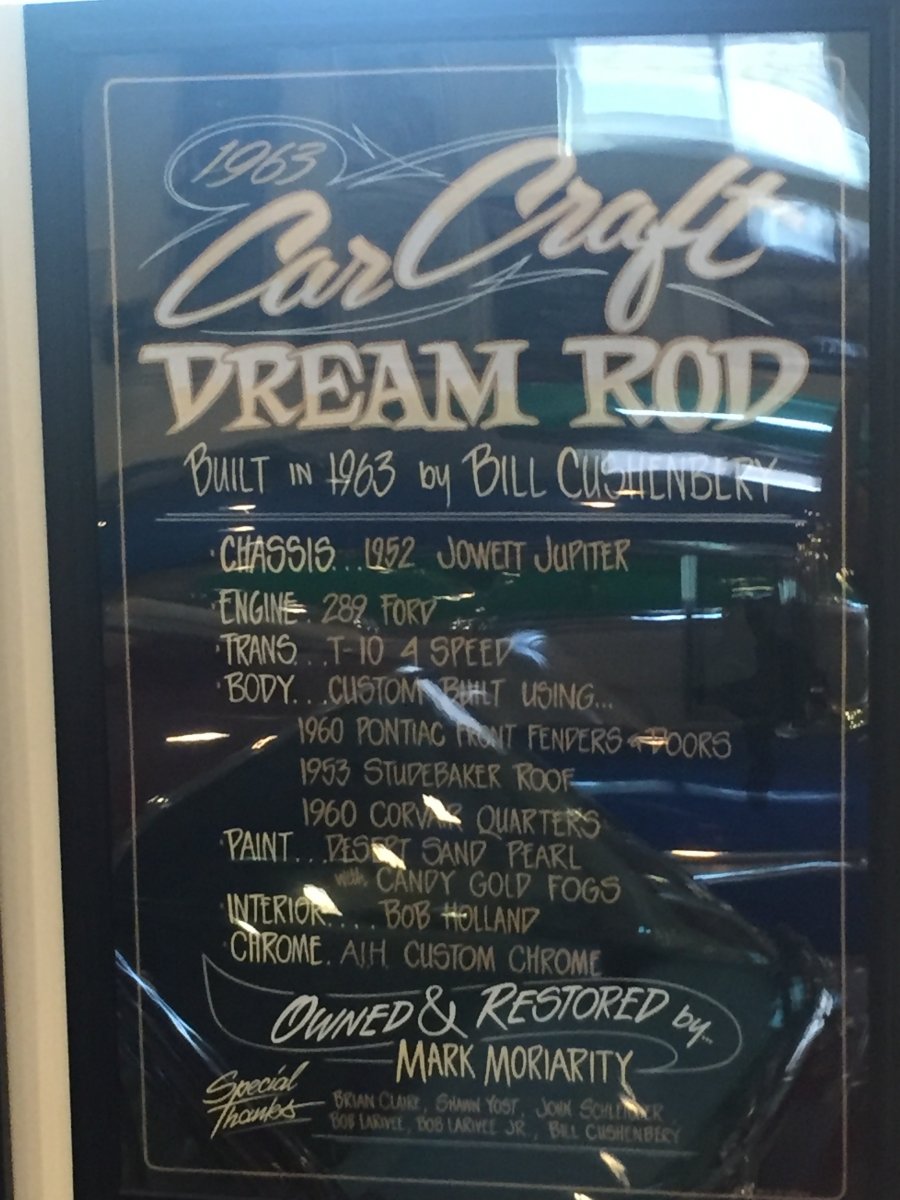 1963
Car Craft
DREAM ROD
BUILT IN 1963 by BILL CUSHENBERY
·CHASSIS...1952 JOWETT JUPITER
·ENGINE. 289 FORD
·TRANS...T-10 4 SPEED
·BODY...CUSTOM BUILT USING...
1960 PONTIAC FRONT FENDERS & DOORS
1953 STUDEBAKER ROOF
1960 CORVAIR QUARTERS
·PAINT...DESERT SAND PEARL
with CANDY GOLD FOGS
·INTERIOR.... BOB HOLLAND
·CHROME. A.I.H. CUSTOM CHROME
OWNED & RESTORED by...
MARK MORIARITY
Special
Thanks
BRIAN CLAIRE, SHAWN YOST, JOHN
BOB LARIVEE, BOB LARIVEE JR., BILL CUSHENBERY